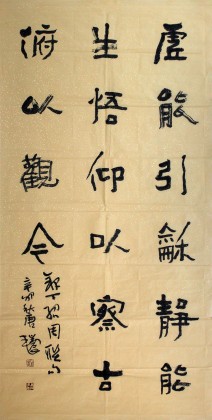 虛能引龢靜能
生悟仰以察古
俯以觀今
聯句
辛卯